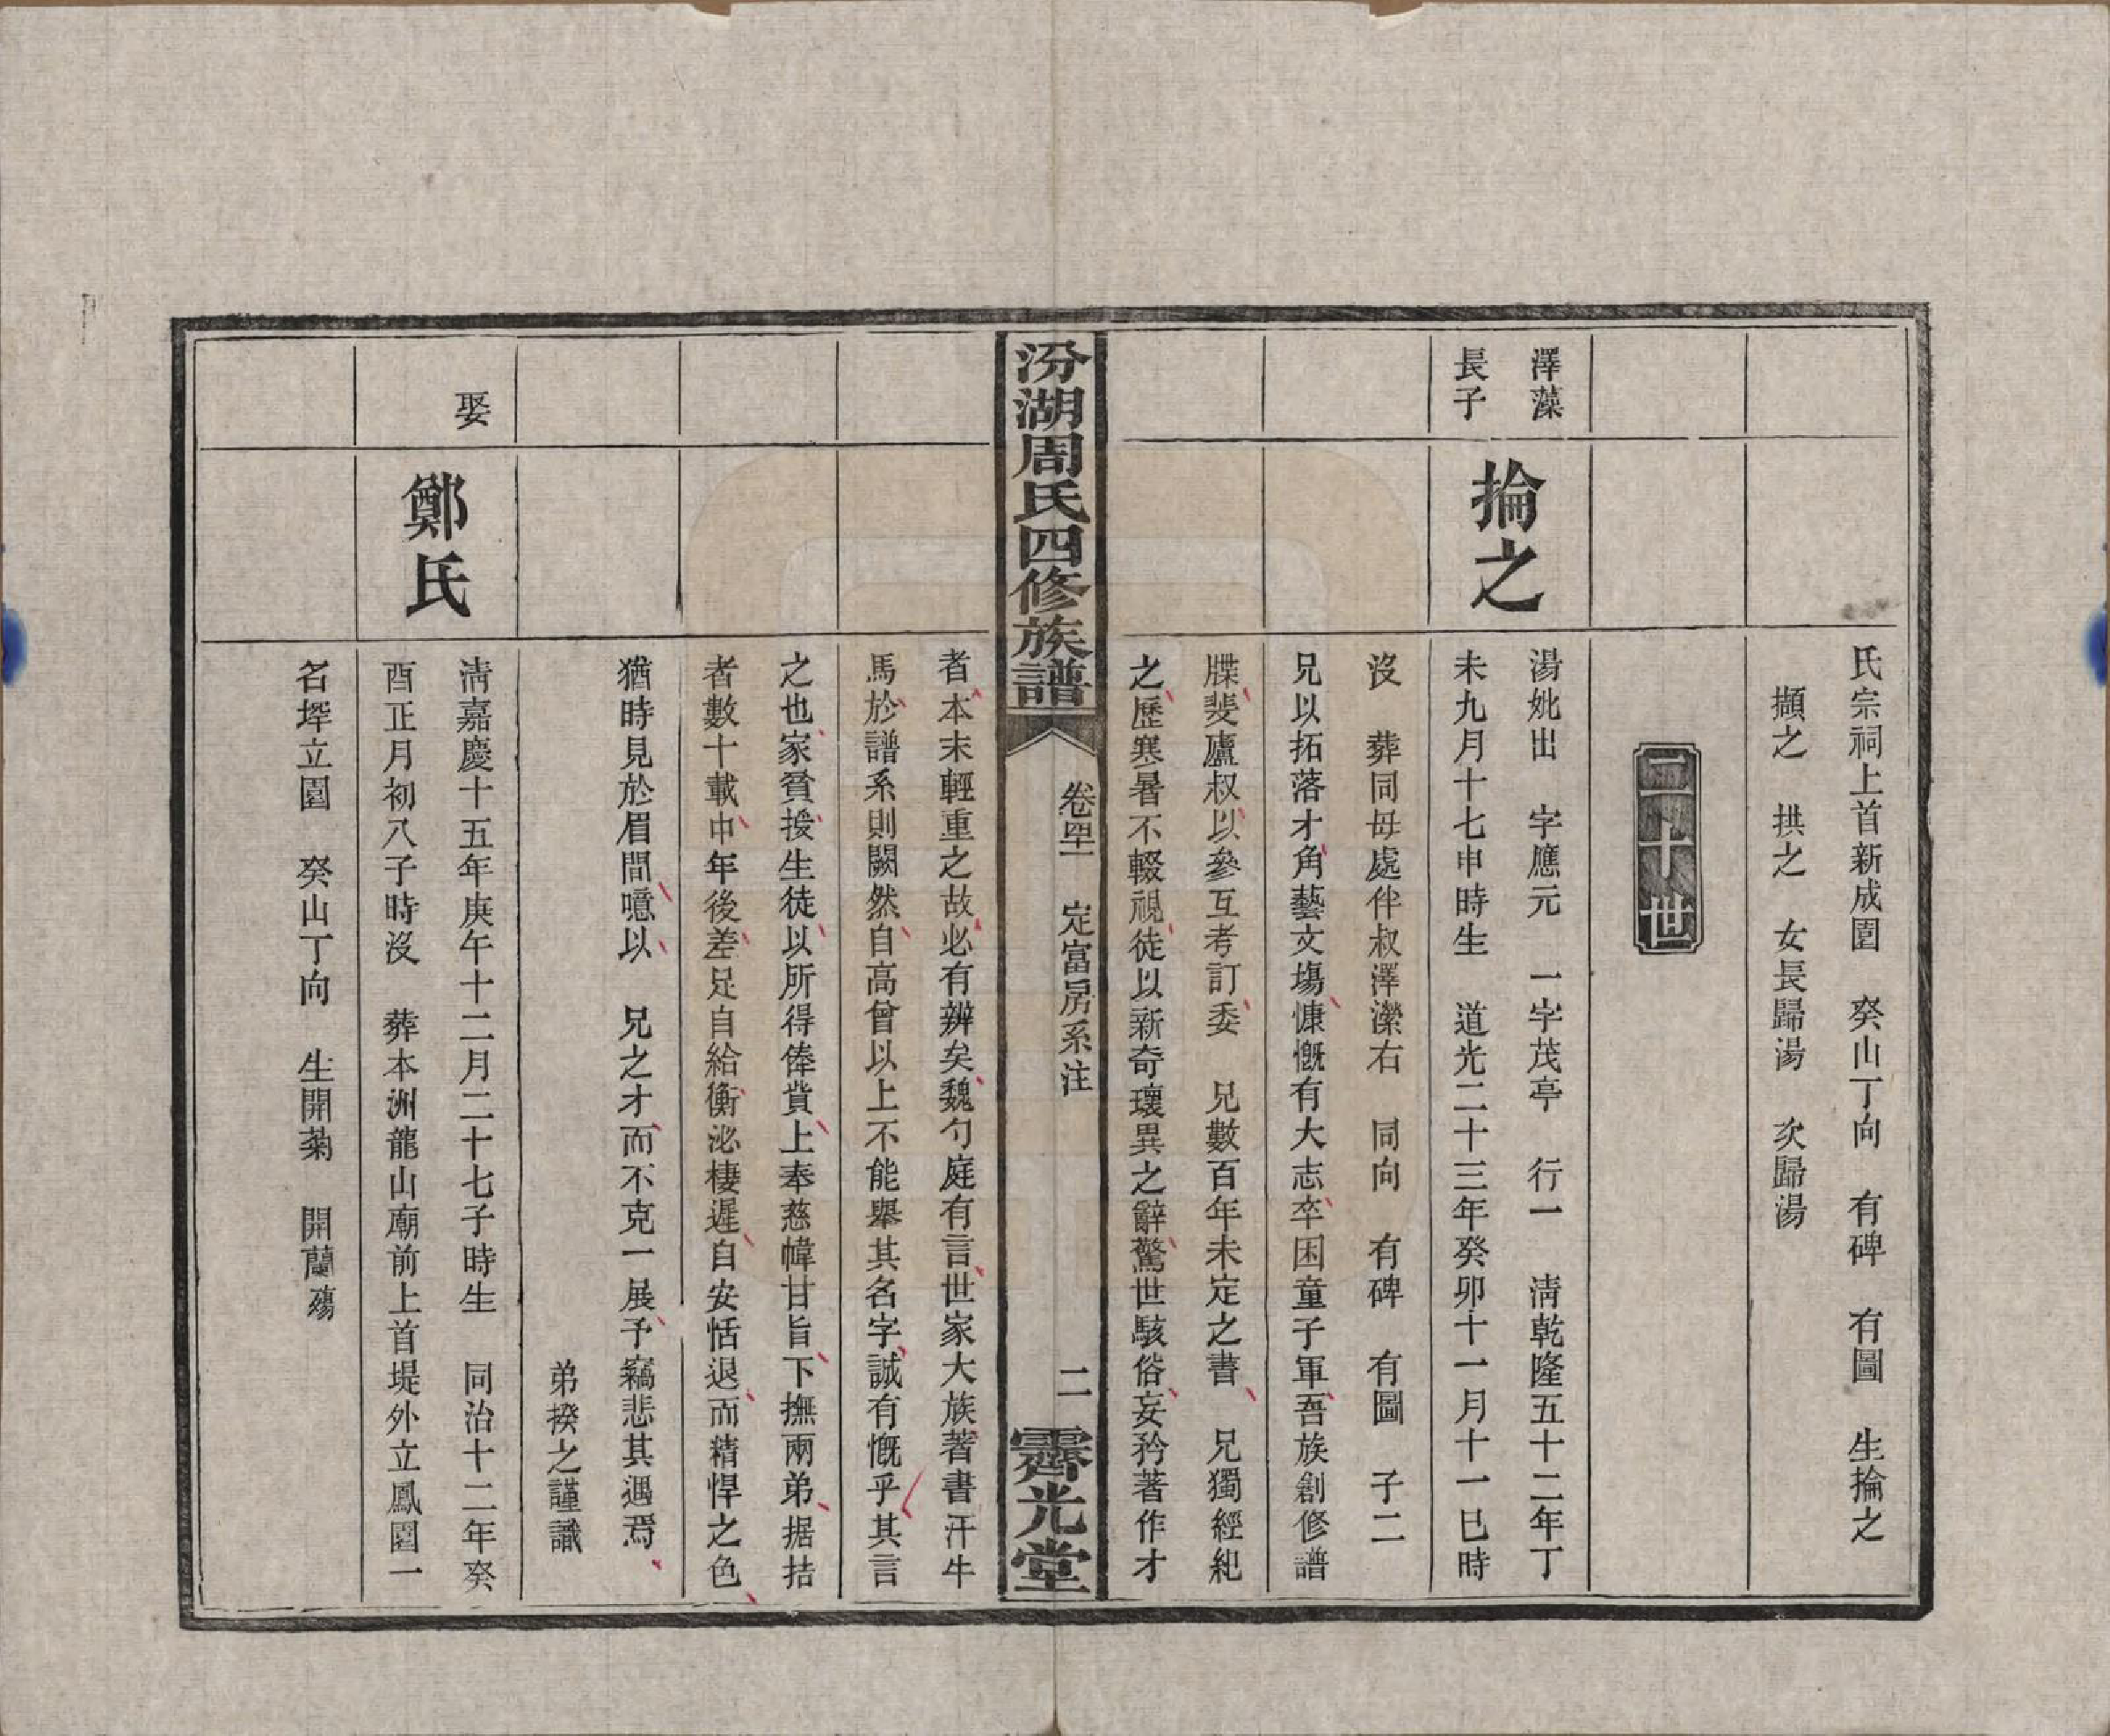 氏宗祠上首新成園　癸山丁向　有碑　有圖　生掄之
擷之　拱之　女長歸湯　次歸湯
二十世
澤藻
長子
掄之
湯妣出　字應元　一字茂亭　行一　清乾隆五十二年丁
未九月十七申時生　道光二十三年癸卯十一月十一巳時
沒　葬同母處伴叔澤瀠右　同向　有碑　有圖　子二
兄以拓落才角藝文場慷慨有大志卒困童子軍吾族創修譜
牒斐廬叔以參互考訂委　兄數百年未定之書　兄獨經紀
之歷寒暑不輟視徒以新奇瓌異之辭驚世駭俗妄矜著作才
汾湖周氏四修族譜
卷四十一　定富房系注
二
霽光堂
者本末輕重之故必有辨矣魏勺庭有言世家大族著書汗牛
馬於譜系則闕然自高曾以上不能舉其名字誠有慨乎其言
之也家貧授生徒以所得俸貲上奉慈幃甘旨下撫兩弟据拮
者數十載中年後差足自給衡泌棲遲自安恬退而精悍之色
猶時見於眉間噫以　兄之才而不克一展予竊悲其遇焉
弟揆之謹識
娶
鄭氏
清嘉慶十五年庚午十二月二十七子時生　同治十二年癸
酉正月初八子時沒　葬本洲龍山廟前上首堤外立鳳園一
名墿立園　癸山丁向　生開菊　開蘭殤